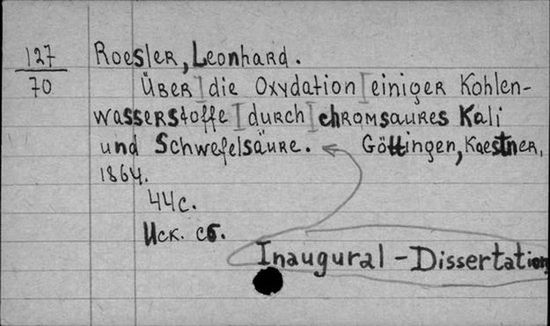 127
70
Roesler, Leonhard.
Über die Oxydation einiger Kohlen-
wasserstoffe durch chromsaures Kali
und Schwefelsäure. Göttingen, Kaestner,
1864.
44 c.
Иск. сб.
Inaugural - Dissertation